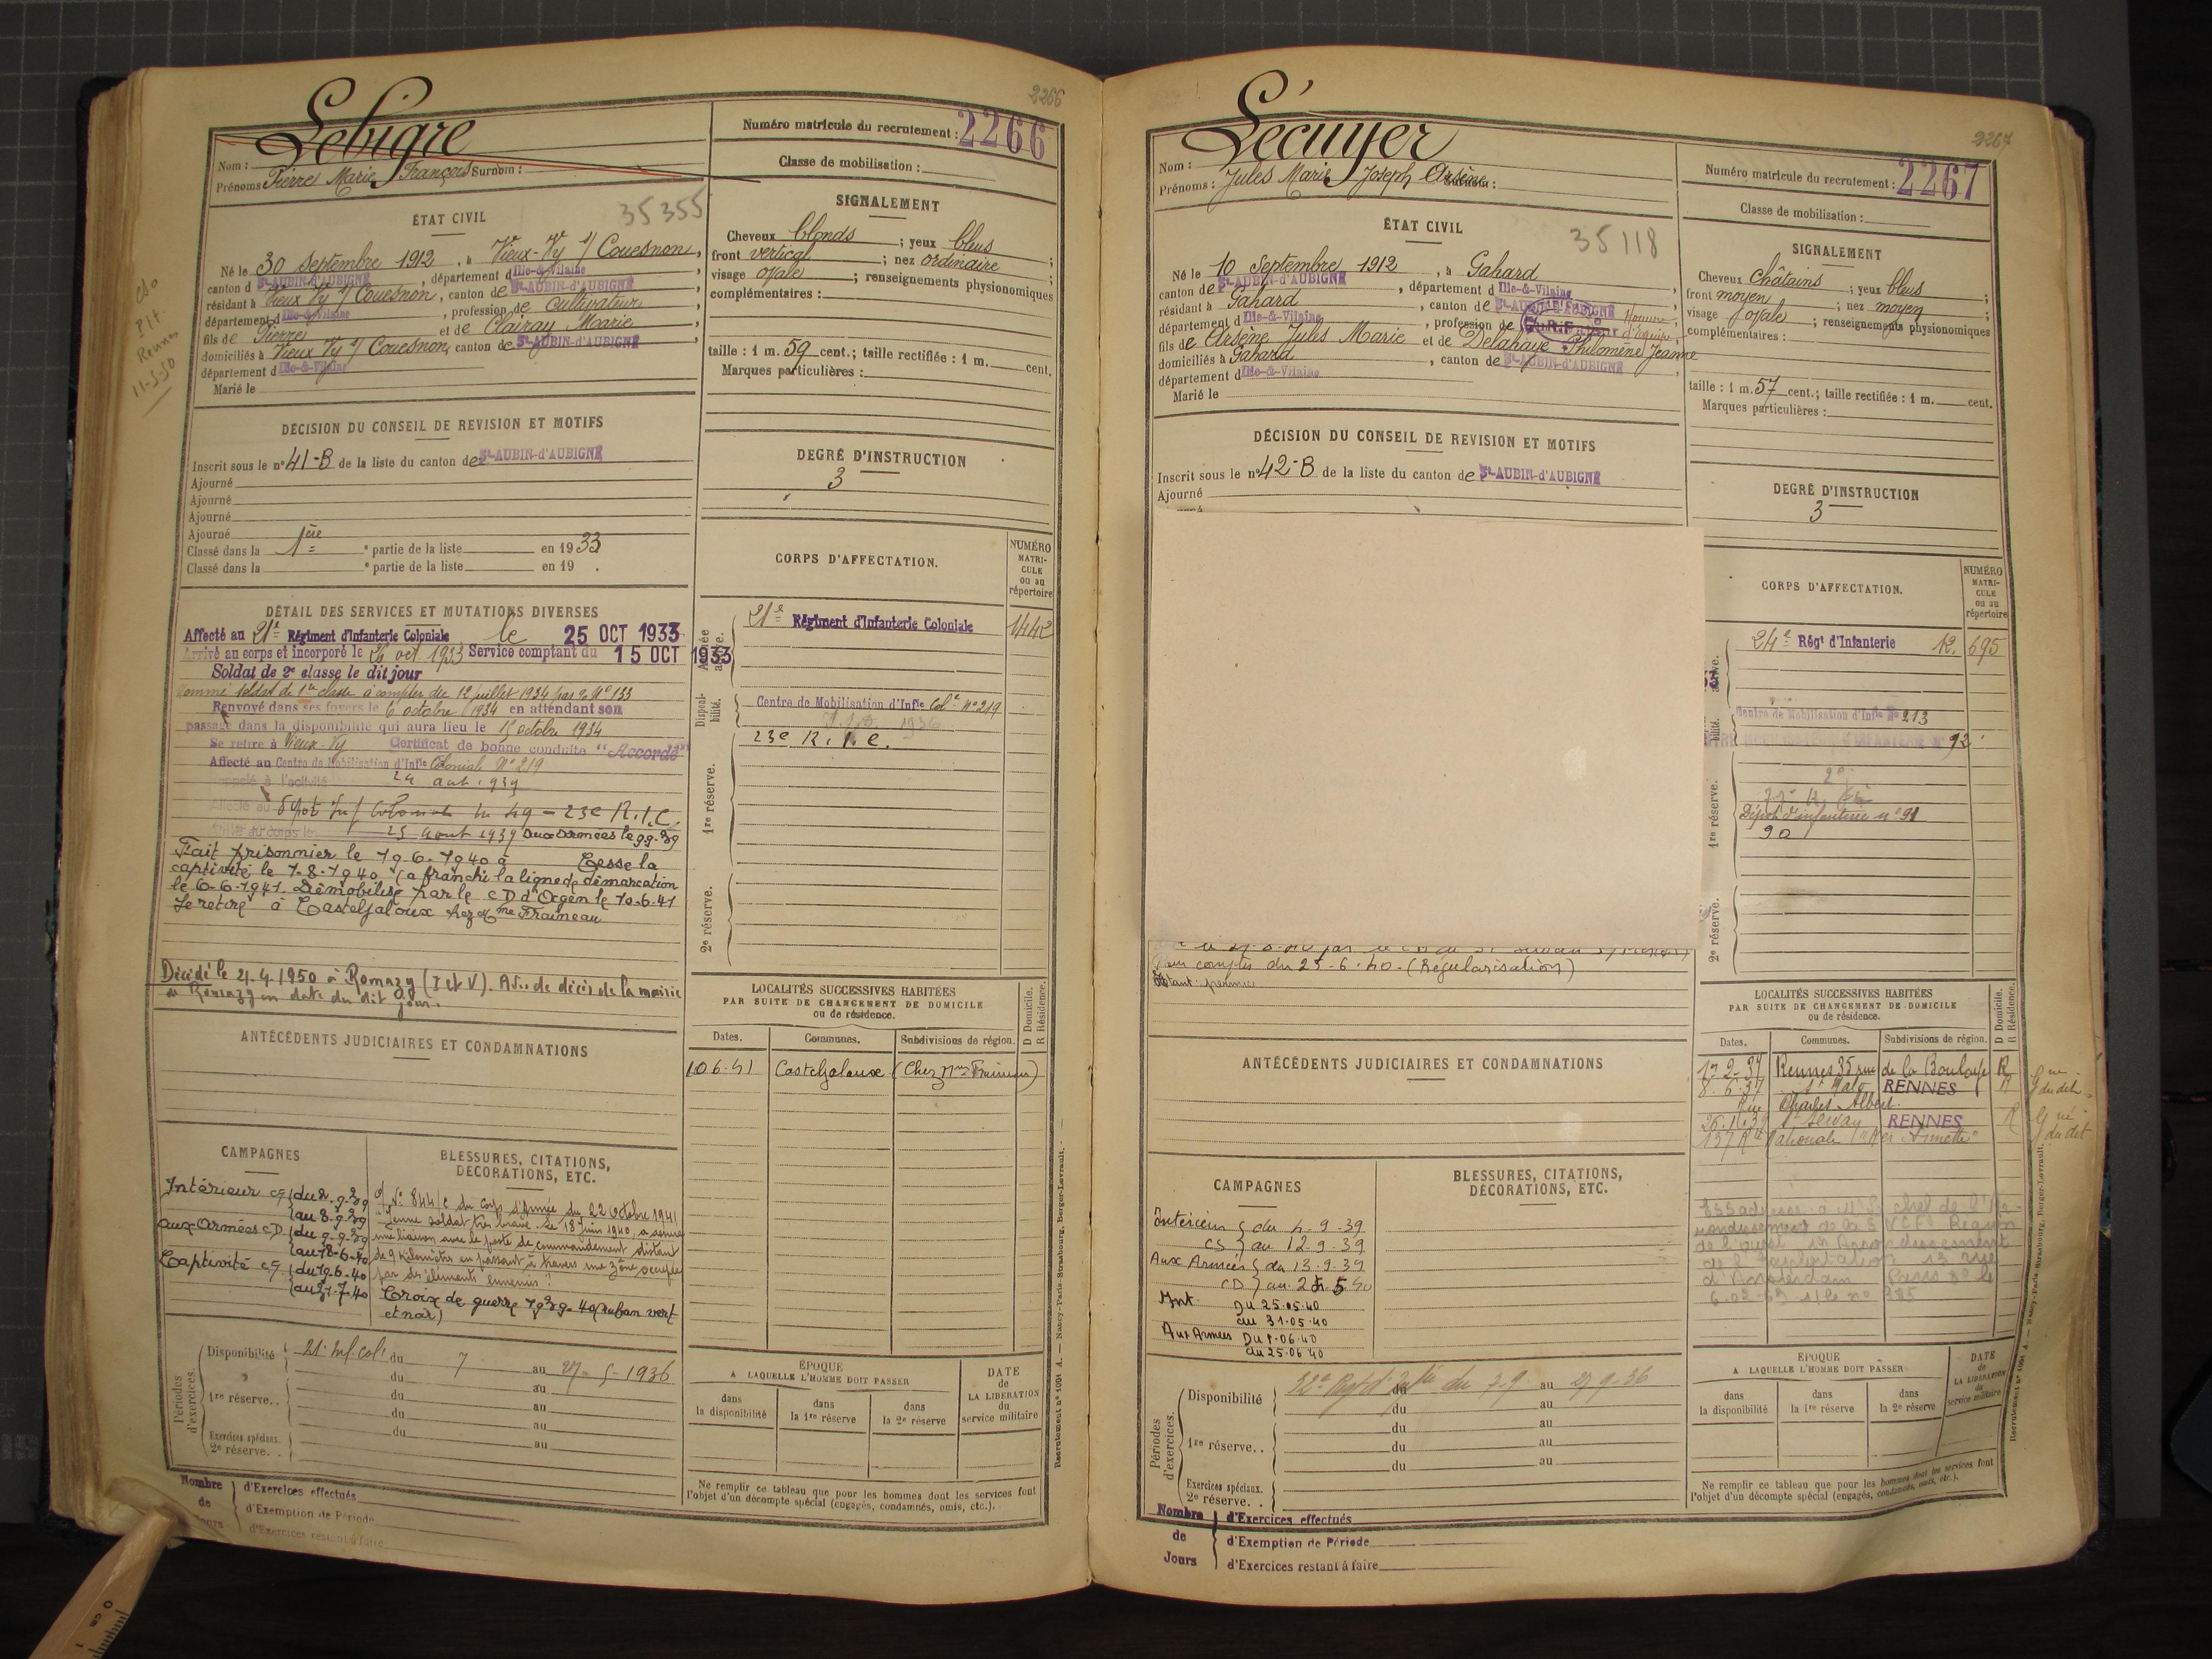 2266
Lebigre
Nom :
Prénoms Pierre Marie François Surnom :
Numéro matricule du recrutement : 2266
Classe de mobilisation :
35355
ÉTAT CIVIL
Né le 30 Septembre 1912, à Vieux-Vy s/ Couesnon,
canton d St-AUBIN-d'AUBIGNÉ, département d Ille-&-Vilaine
résidant à Vieux Vy s/ Couesnon, canton de St-AUBIN-d'AUBIGNÉ
département d Ille-&-Vilaine, profession de Cultivateur
fils de Pierre et de Clairay Marie
domiciliés à Vieux Vy s/ Couesnon, canton de St-AUBIN-d'AUBIGNÉ
département d Ille-&-Vilaine
Marié le
Rennes
11-5-50
SIGNALEMENT
Cheveux blonds ; yeux bleus
front vertical ; nez ordinaire ;
visage ovale ; renseignements physionomiques
complémentaires :
taille : 1 m. 59 cent.; taille rectifiée : 1 m. cent.
Marques particulières :
DÉCISION DU CONSEIL DE REVISION ET MOTIFS
Inscrit sous le n° 41-B de la liste du canton de St-AUBIN-d'AUBIGNÉ
Ajourné
Ajourné
Ajourné
Ajourné
Classé dans la 1ère partie de la liste en 1933
Classé dans la e partie de la liste en 19 .
DEGRÉ D'INSTRUCTION
3
DÉTAIL DES SERVICES ET MUTATIONS DIVERSES
Affecté au 21e Régiment d'Infanterie Coloniale le 25 OCT 1933
Arrivé au corps et incorporé le 26 oct 1933 Service comptant du 15 OCT 1933
Soldat de 2e classe le dit jour
Nommé soldat de 1re classe à compter du 12 juillet 1934 par N° 133
Renvoyé dans ses foyers le 6 octobre 1934 en attendant son
passage dans la disponibilité qui aura lieu le 15 octobre 1934
Se retire à Vieux-Vy Certificat de bonne conduite "Accordé"
Affecté au Centre de Mobilisation d'Infie Coloniale N° 219
Rappelé à l'activité 24 aout 1939
Affecté au dépôt Inf Coloniale 23e R.I.C.
Arrivé au corps le 25 Aout 1939 aux armées le 9.9.39
Fait prisonnier le 19.6.1940 à Cesse la
captivité le 1.8.1940 (a franchi la ligne de démarcation
le 6-6-1941. Démobilisé par le CD d'Agen le 10-6-41
Se retire à Casteljaloux chez Mme Fraineau
Décédé le 21.4.1950 à Romazy (I et V). Avis de décès de la mairie
de Romazy en date du dit jour.
CORPS D'AFFECTATION.
NUMÉRO MATRICULE ou au répertoire
21e Régiment d'Infanterie Coloniale 1442
Disponibilité.
Centre de Mobilisation d'Infie Colle N° 219
1936
23e R.I.C.
1re réserve.
2e réserve.
ANTÉCÉDENTS JUDICIAIRES ET CONDAMNATIONS
LOCALITÉS SUCCESSIVES HABITÉES
PAR SUITE DE CHANGEMENT DE DOMICILE
ou de résidence.
D Domicile.
R Résidence.
Dates. Communes. Subdivisions de région.
10.6.41 Casteljaloux (Chez Mme Fraineau)
CAMPAGNES
Intérieur CS {du 2.9.39
{au 8.9.39
aux Armées CD {du 9.9.39
{au 18-6-40
Captivité CS {du 19.6.40
{au 31.7.40
BLESSURES, CITATIONS,
DÉCORATIONS, ETC.
N° 844/C du Corps d'Armée du 22 Octobre 1941
"Jeune soldat très brave. Le 18 Juin 1940, a assuré
une liaison avec le poste de commandement distant
de 9 kilomètres en passant à travers une zône occupée
par des éléments ennemis".
Croix de guerre 1939-40 (ruban vert
et noir)
Périodes d'exercices.
Disponibilité 21e Inf. col. du 7 au 27-5-1936
du au
1re réserve.. du au
du au
Exercices spéciaux. du au
2e réserve. . au
ÉPOQUE
A LAQUELLE L'HOMME DOIT PASSER
dans la disponibilité
dans la 1re réserve
dans la 2e réserve
DATE de LA LIBÉRATION du service militaire
Nombre de Jours
d'Exercices effectués
d'Exemption de Période
d'Exercices restant à faire
Ne remplir ce tableau que pour les hommes dont les services font
l'objet d'un décompte spécial (engagés, condamnés, omis, etc.).
Recrutement n° 1091 A. — Nancy-Paris-Strasbourg, Berger-Levrault. —
2267
Lécuyer
Nom :
Prénoms : Jules Marie Joseph Arsène Surnom :
Numéro matricule du recrutement : 2267
Classe de mobilisation :
35118
ÉTAT CIVIL
Né le 10 Septembre 1912, à Gahard
canton de St-AUBIN-d'AUBIGNÉ, département d Ille-&-Vilaine
résidant à Gahard, canton de St-AUBIN-d'AUBIGNÉ
département d Ille-&-Vilaine, profession de Homme d'équipe
fils de Arsène Jules Marie et de Delahaye Philomène Jeanne
domiciliés à Gahard, canton de St-AUBIN-d'AUBIGNÉ
département d Ille-&-Vilaine
Marié le
SIGNALEMENT
Cheveux châtains ; yeux bleus ;
front moyen ; nez moyen ;
visage ovale ; renseignements physionomiques
complémentaires :
taille : 1 m. 57 cent.; taille rectifiée : 1 m. cent.
Marques particulières :
DÉCISION DU CONSEIL DE REVISION ET MOTIFS
Inscrit sous le n° 42-B de la liste du canton de St-AUBIN-d'AUBIGNÉ
Ajourné
DEGRÉ D'INSTRUCTION
3
CORPS D'AFFECTATION.
NUMÉRO MATRICULE ou au répertoire
24e Régt d'Infanterie 12. 695
Centre de Mobilisation d'Infie N° 213
CENTRE MOBILISATION D'INFANTERIE N° 92
Dépôt d'infanterie n° 91
90
1re réserve.
2e réserve.
Pour compter du 25-6-40. (Régularisation)
ANTÉCÉDENTS JUDICIAIRES ET CONDAMNATIONS
LOCALITÉS SUCCESSIVES HABITÉES
PAR SUITE DE CHANGEMENT DE DOMICILE
ou de résidence.
D Domicile.
R Résidence.
Dates. Communes. Subdivisions de région.
Rennes 35 rue de la R
8.6.37 St Malo RENNES R
Rue Charles Albert
St Servan RENNES R
137 Rte Nationale
CAMPAGNES
Intérieur { du 4-9-39
CS } au 12-9-39
Aux Armées { du 13.9.39
CD } au 24.5.40
Int. Du 25.05.40
au 31.05.40
Aux Armées Du 1.06.40
au 25.06.40
BLESSURES, CITATIONS,
DÉCORATIONS, ETC.
Périodes d'exercices.
Disponibilité du 7.9 au 27.9.36
du au
du au
1re réserve.. du au
du au
Exercices spéciaux.
2e réserve. .
ÉPOQUE
A LAQUELLE L'HOMME DOIT PASSER
dans la disponibilité
dans la 1re réserve
dans la 2e réserve
DATE de LA LIBÉRATION du service militaire
Ne remplir ce tableau que pour les hommes dont les services font
l'objet d'un décompte spécial (engagés, condamnés, omis, etc.).
Nombre de Jours
d'Exercices effectués
d'Exemption de Période
d'Exercices restant à faire
Recrutement n° 1091 A. — Nancy-Paris-Strasbourg, Berger-Levrault.
0 cm 1